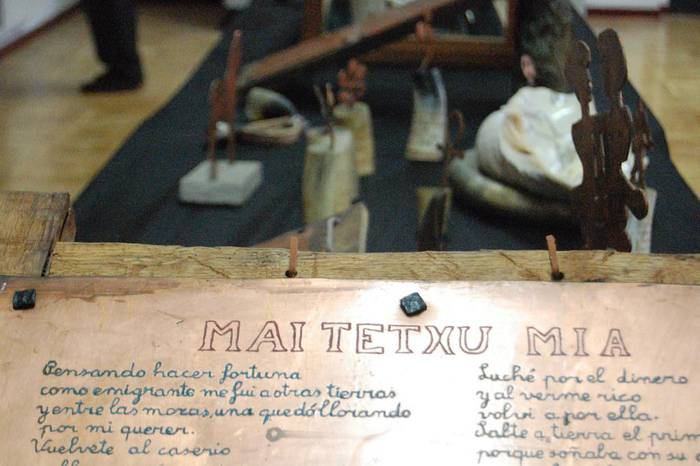 MAITETXU MIA
Pensando hacer fortuna
como emigrante me fui a otras tierras
y entre las mozas, una quedó llorando
por mi querer.
Vuelvete al caserio
Luché por el dinero
y al verme rico
volvi a por ella.
Salte a tierra el prim
porque soñaba con su